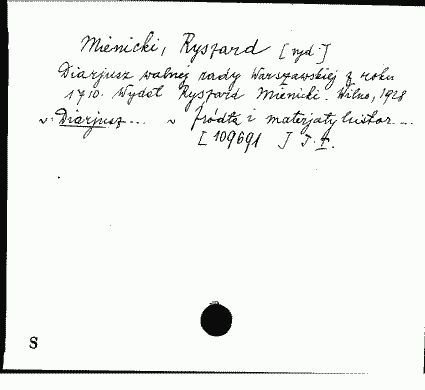 Mienicki, Ryszard [wyd.]
Diarjusz walnej rady Warszawskiej z roku
1710. Wydał Ryszard Mienicki. Wilno, 1928
v. Diarjusz... v Źródła i materjały histor...
[109691] T. I.
S